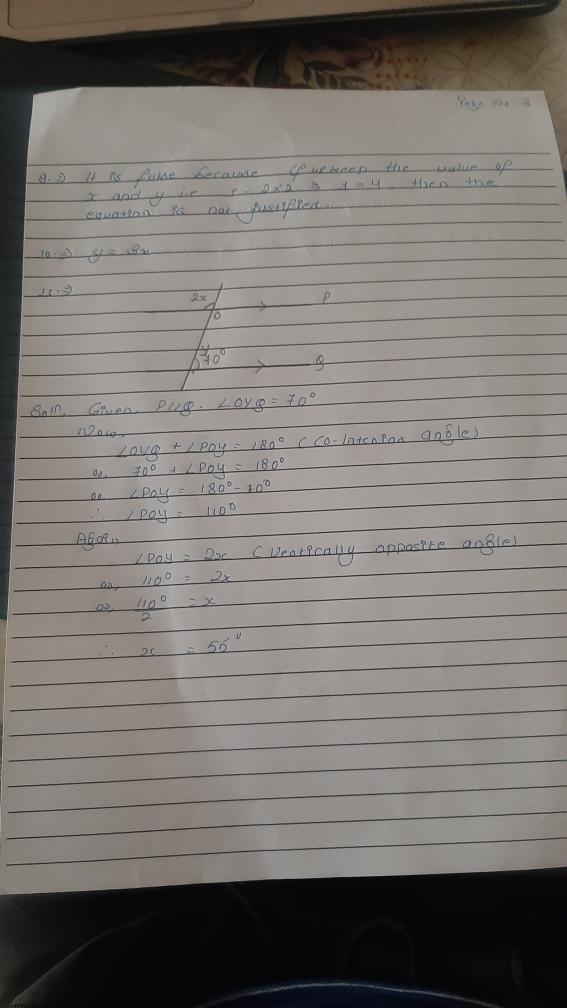 Page No: 3
9.⇒ It is false because if we keep the value of
x and y i.e 1 = 2×2 ⇒ 1 = 4, then the
equation is not justified.
10.⇒ y = 3x
11.⇒
2x P
O
y
70° Q
Soln, Given, P//Q. ∠OYQ = 70°
Now,
∠OYQ + ∠POY = 180° (Co-Interior angle)
or, 70° + ∠POY = 180°
or, ∠POY = 180° - 70°
∴ ∠POY = 110°
Again,
∠POY = 2x (Vertically opposite angle)
or, 110° = 2x
or, 110°/2 = x
∴ x = 55°